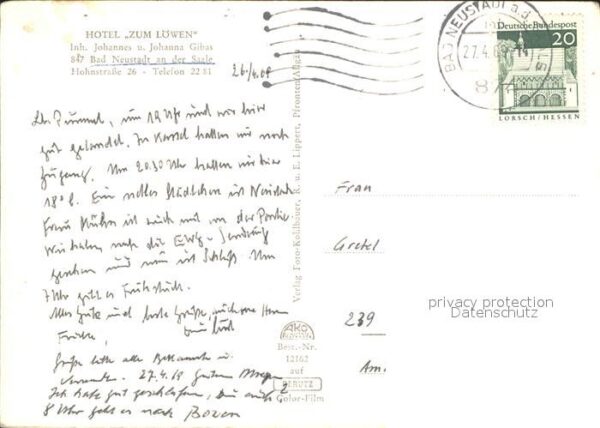 HOTEL „ZUM LÖWEN"
Inh. Johannes u. Johanna Gibas
Bad Neustadt an der Saale
Hohnstraße 26 - Telefon 22 81
um 19 Uhr sind wir hier
gut gelandet. In Kassel hatten wir noch
Um 20.30 Uhr hatten wir hier
18°. Ein nettes Städtchen ist Neustadt
ist auch mit von der Partie.
Wir haben noch die
gesehen und nun ist Schluß. Um
7 Uhr gibt es Frühstück.
Alles Gute und beste Grüße, auch von Herrn
Grüße bitte alle Bekannte u.
Verwandte. 27.4.69 Guten Morgen
Ich habe gut geschlafen, Du auch?
8 Uhr geht es nach Bozen
Verlag Foto-Kohlbauer, R. u. E. Lippert, Pfronten/Allgäu
AKO
Best.-Nr.
12162
auf
PERUTZ
Color-Film
BAD NEUSTADT a.d.
27.4.69-14
Deutsche Bundespost
20
LORSCH/HESSEN
Frau
Gretel
239
Am.
privacy protection
Datenschutz